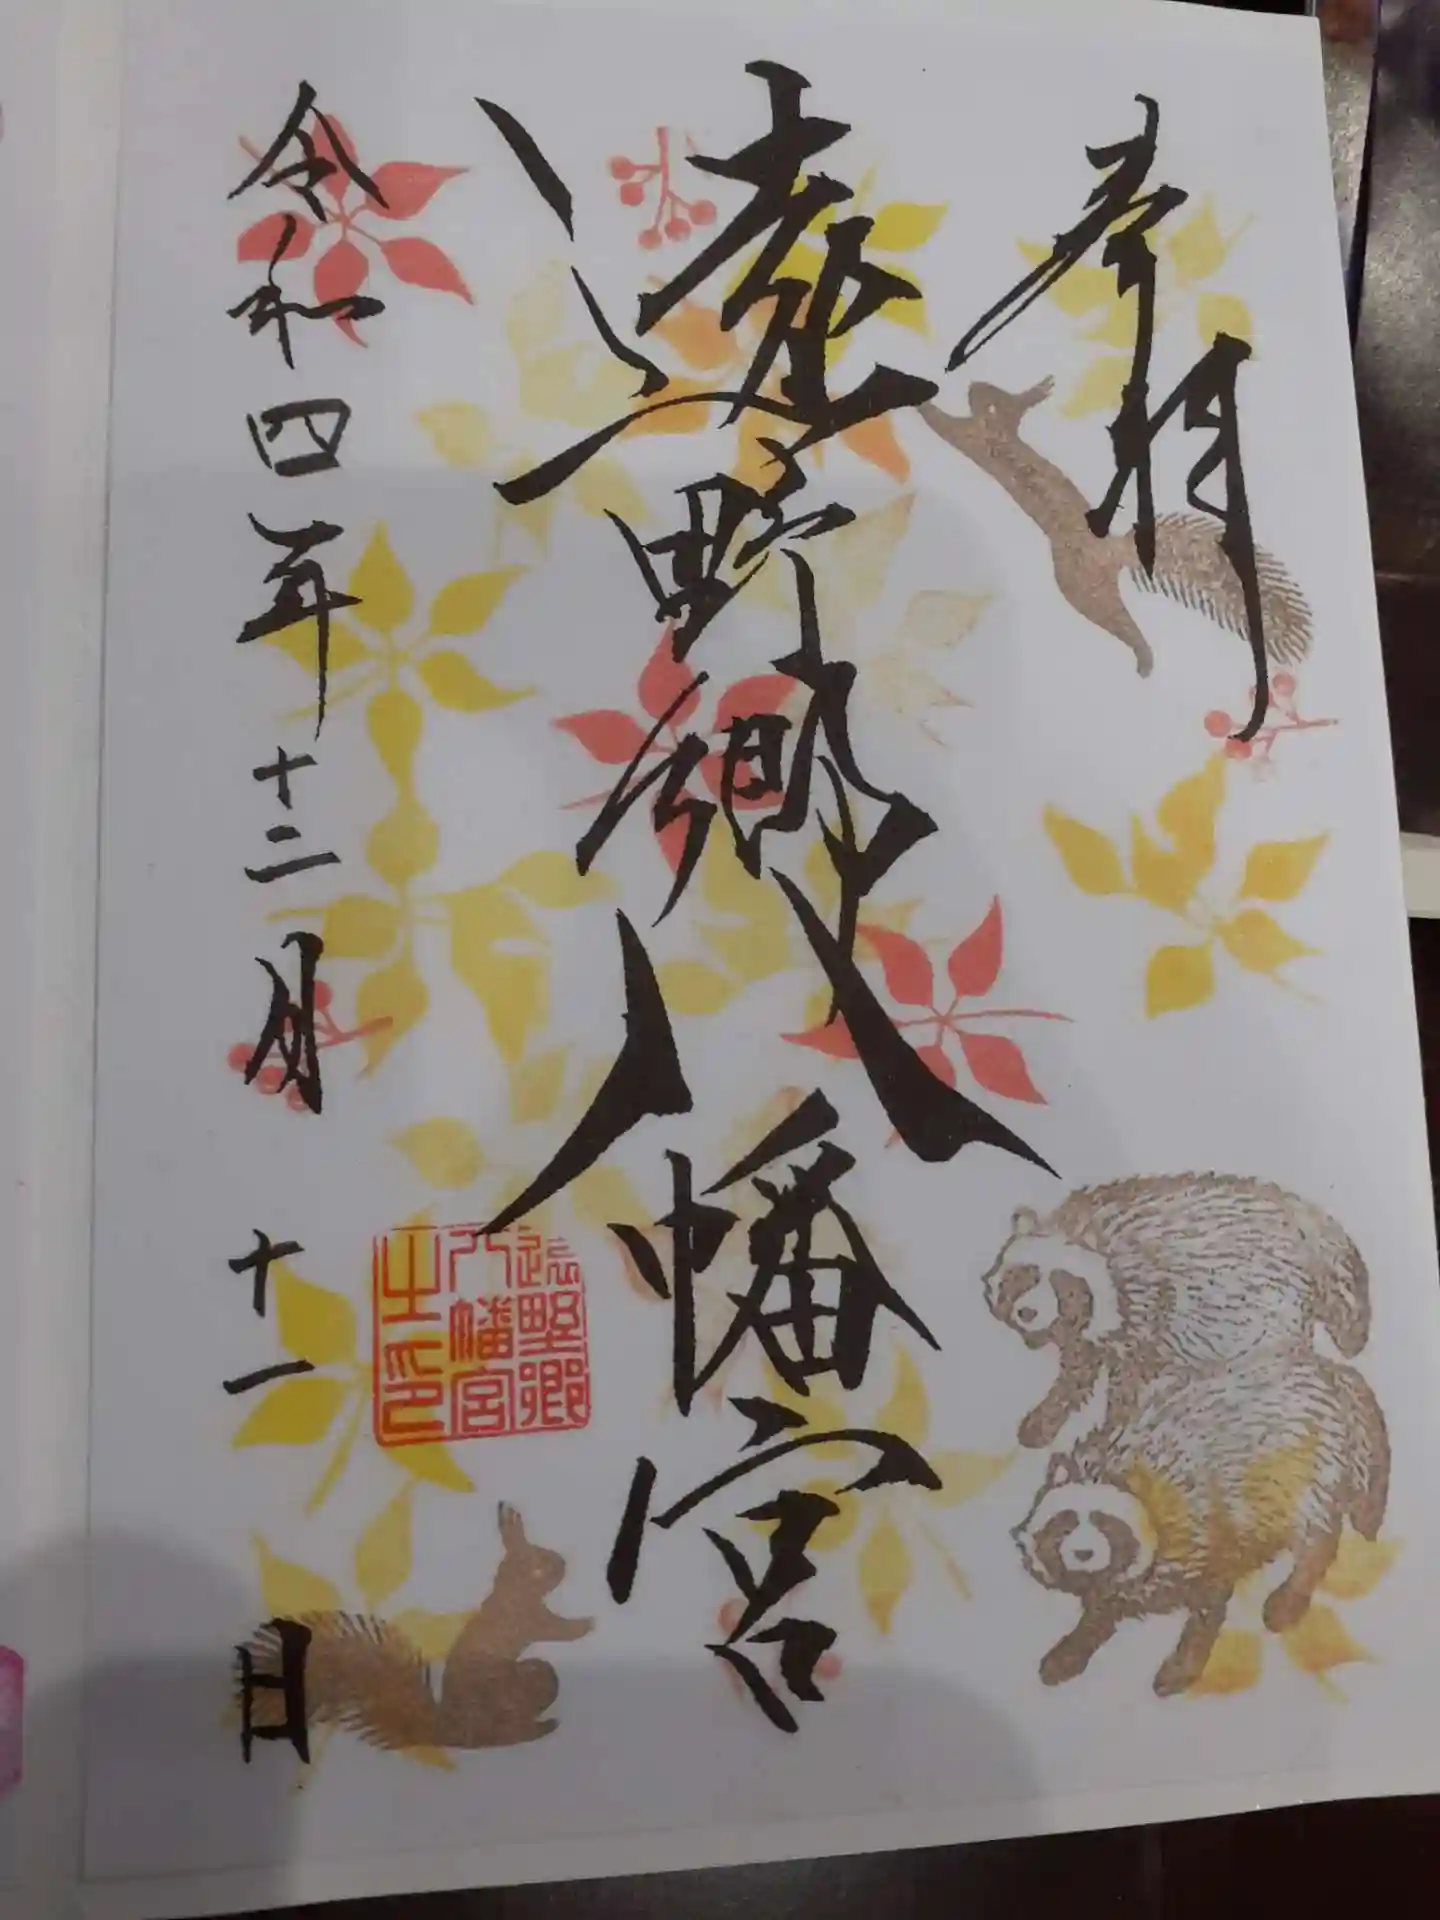 奉拝
遠野郷八幡宮
遠野郷
八幡宮
之印
令和四年十二月十一日